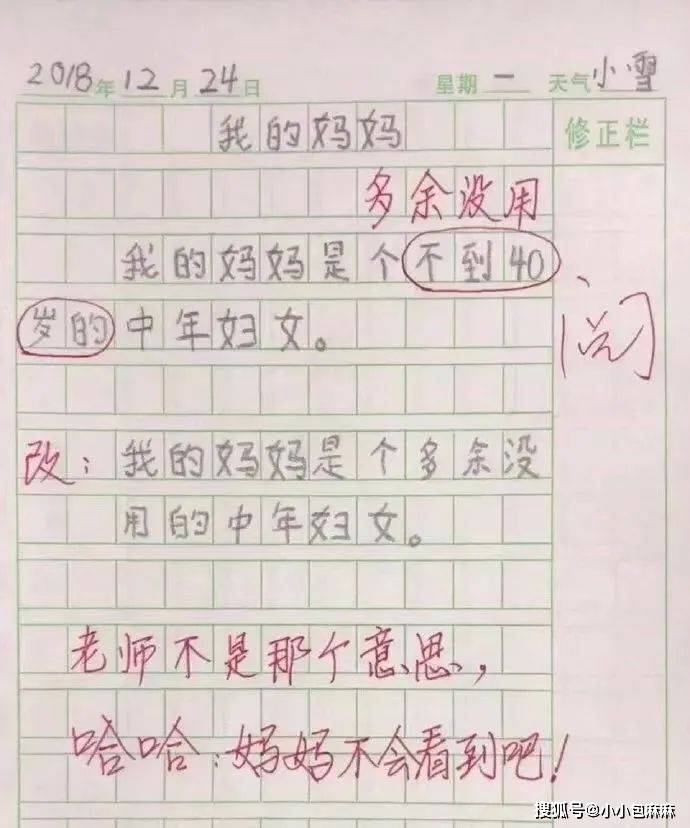 2018年12月24日 星期一 天气小雪
我的妈妈 修正栏
多余没用
我的妈妈是个不到40
岁的中年妇女。
阅
改：我的妈妈是个多余没
用的中年妇女。
老师不是那个意思，
哈哈：妈妈不会看到吧！
搜狐号@小小包麻麻